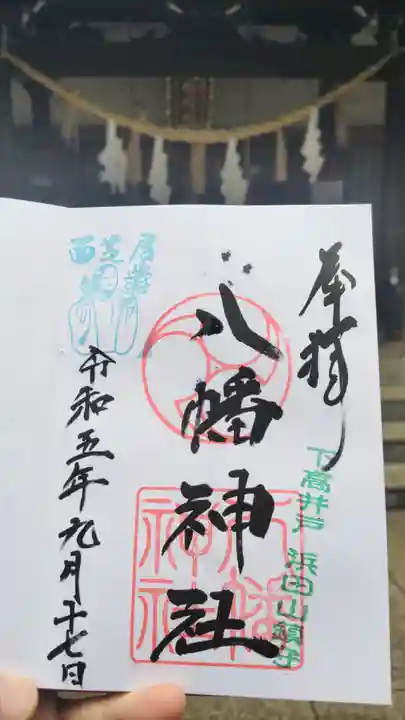 奉拝
下高井戸 浜田山鎮守
八幡神社
八幡
神社
令和五年九月十七日